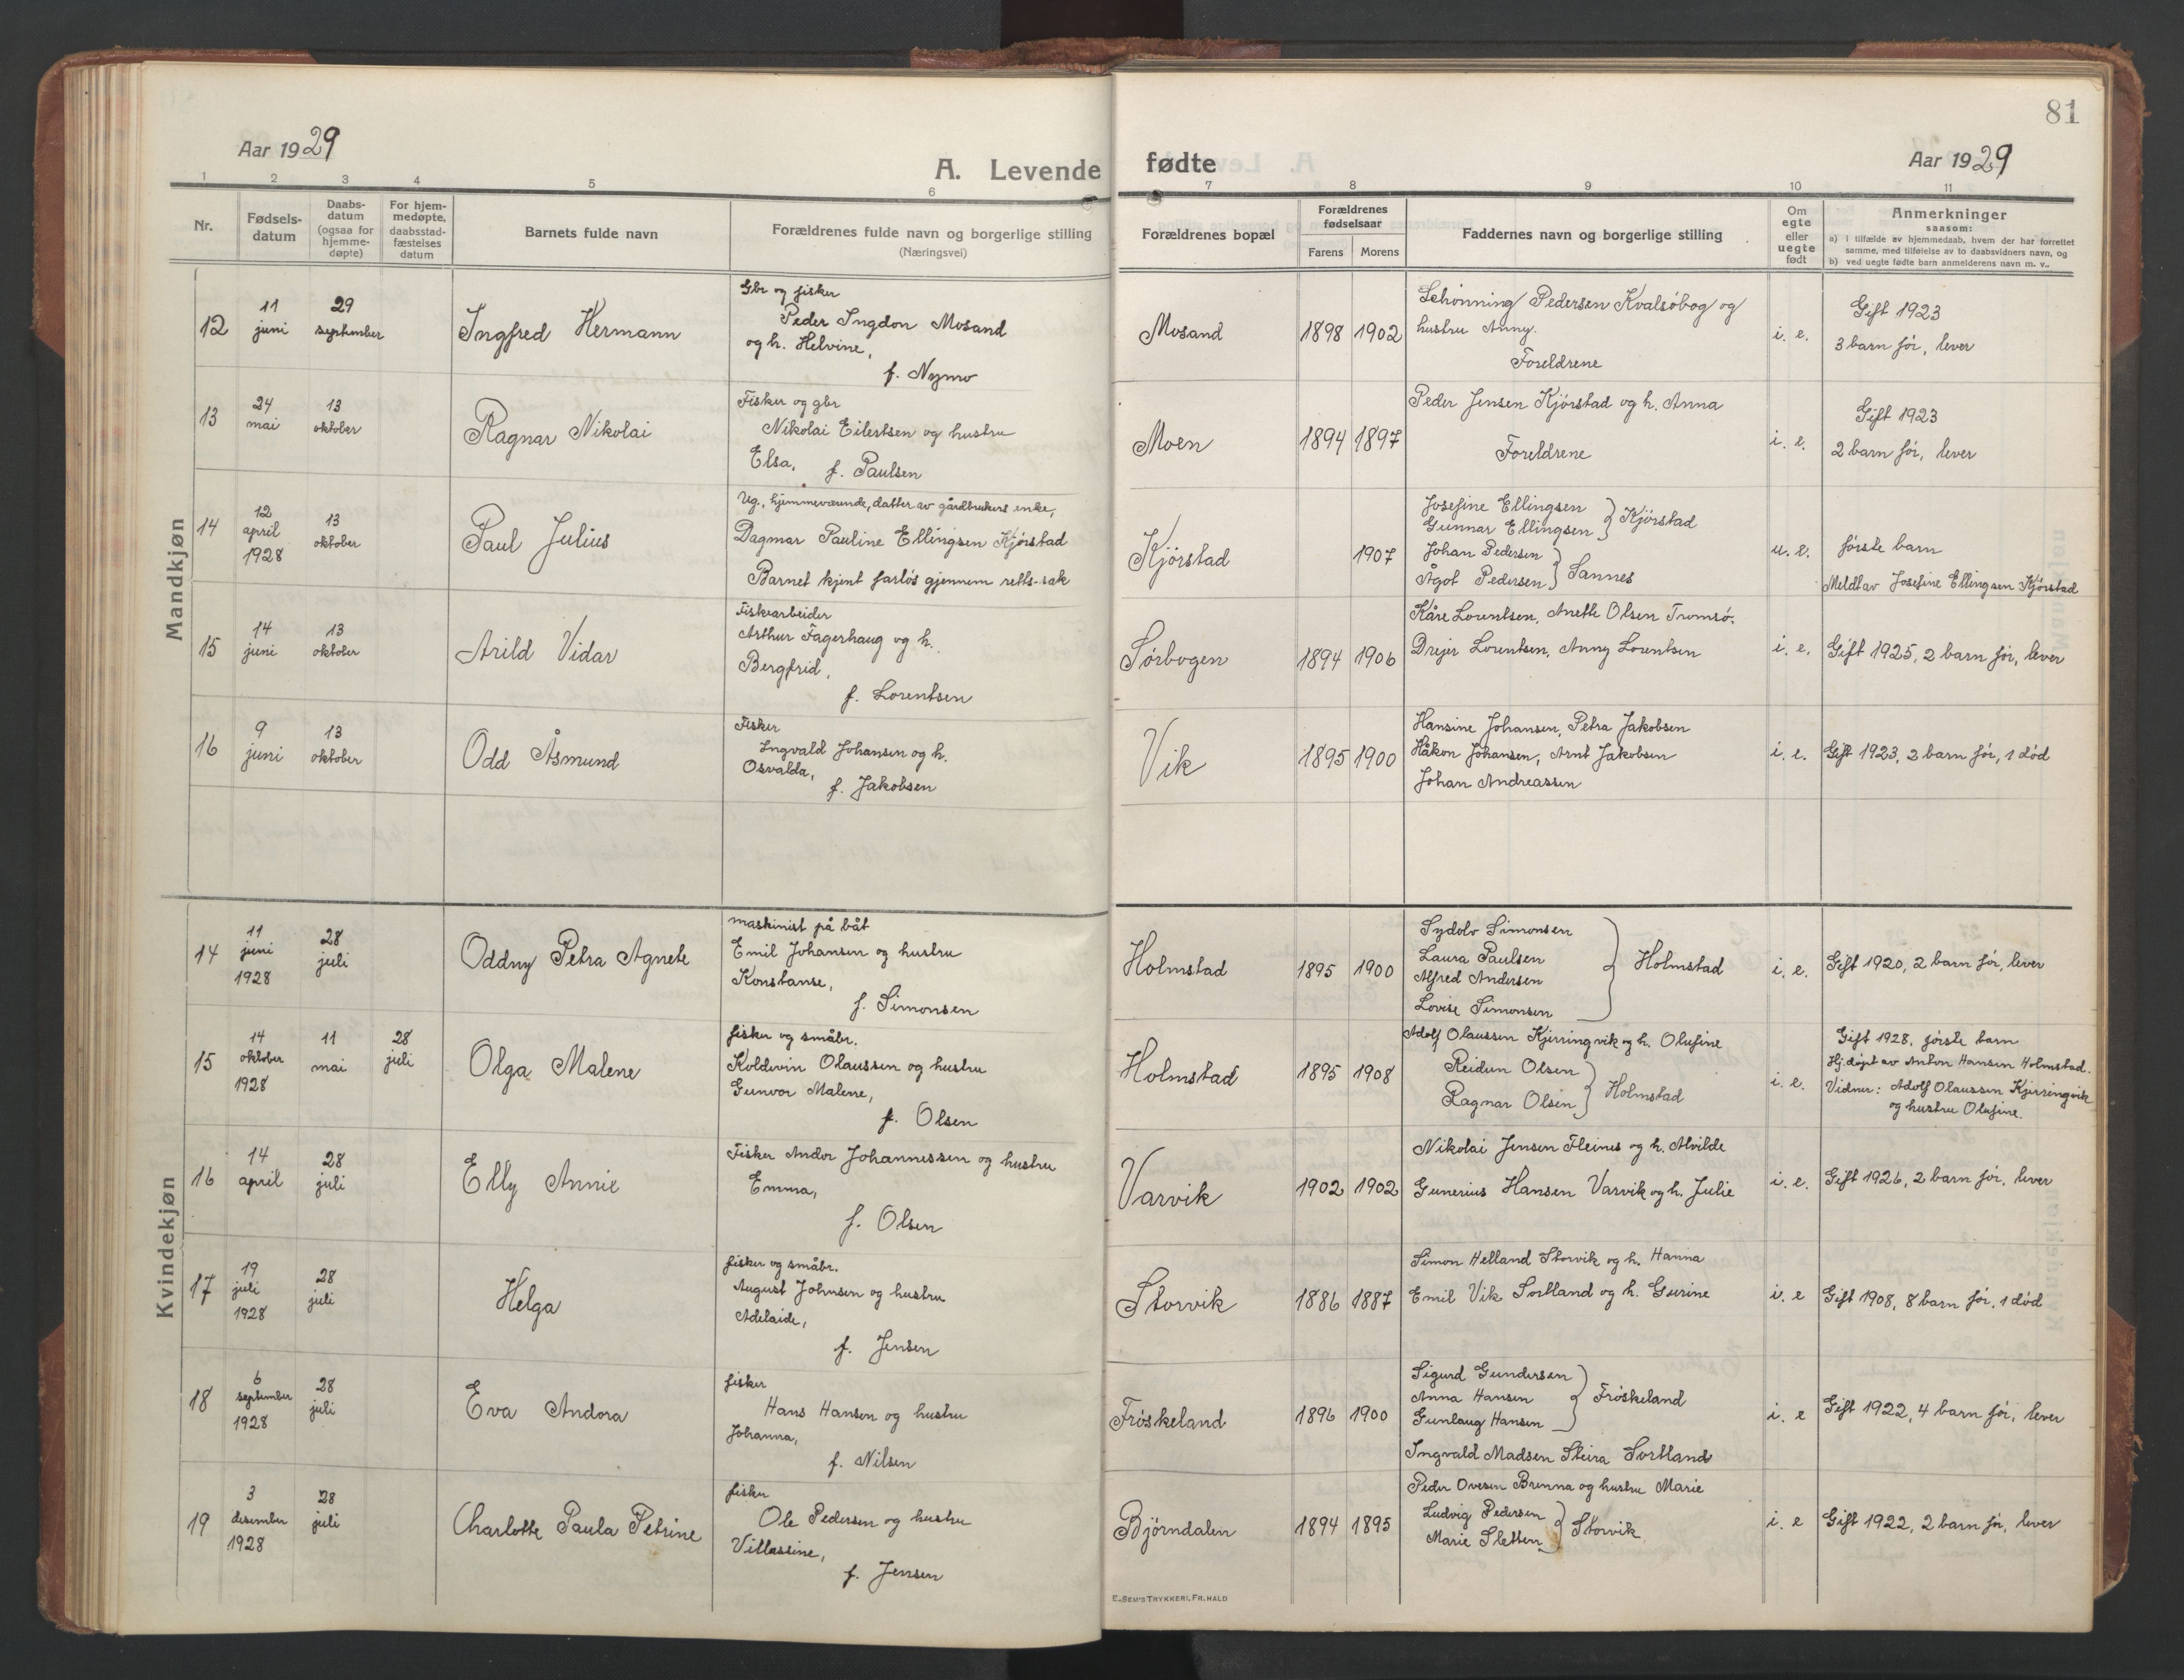 81
Aar 1929
A. Levende
fødte
Aar 1929
1 2 3 4 5 6 7 8 9 10 11
Nr.
Fødsels-
datum
Daabs-
datum
(ogsaa for
hjemme-
døpte)
For hjem-
medøpte,
daabsstad-
fæstelses
datum
Barnets fulde navn
Forældrenes fulde navn og borgerlige stilling
(Næringsvei)
Forældrenes bopæl
Forældrenes
fødselsaar
Farens Morens
Faddernes navn og borgerlige stilling
Om
egte
eller
uegte
født
Anmerkninger
saasom:
a) i tilfælde av hjemmedaab, hvem der har forrettet
samme, med tilføielse av to daabsvidners navn, og
b) ved uegte fødte barn anmelderens navn m. v..
Mandkjøn
12
11
juni
29
september
Ingfred Hermann
Gbr og fisker
Peder Ingdon Mosand
og h. Helvine,
f. Nymo
Mosand
1898 1902
Schønning Pedersen Kvalsøbog og
hustru Anny.
Foreldrene
i. e.
Gift 1923
3 barn før, lever
13
24
mai
13
oktober
Ragnar Nikolai
Fisker og gbr
Nikolai Eilertsen og hustru
Elsa, f. Paulsen
Moen
1894 1897
Peder Jensen Kjørstad og h. Anna
Foreldrene
i. e.
Gift 1923
2 barn før, lever
14
12
april
1928
13
oktober
Paul Julius
Ug., hjemmeværende, datter av gårdbrukers enke,
Dagmar Pauline Ellingsen Kjørstad
Barnet kjent farløs gjennem retts-sak
Kjørstad
1907
Josefine Ellingsen
Gunnar Ellingsen } Kjørstad
Johan Pedersen
Ågot Pedersen } Sannes
u. e.
første barn
Meldt av Josefine Ellingsen Kjørstad
15
14
juni
13
oktober
Arild Vidar
Fiskearbeider
Arthur Fagerhaug og h.
Bergfrid,
f. Lorentsen
Sørbogen
1894 1906
Kåre Lorentsen, Anette Olsen Tromsø.
Drejer Lorentsen, Anny Lorentsen
i. e.
Gift 1925, 2 barn før, lever
16
9
juni
13
oktober
Odd Åsmund
Fisker
Ingvald Johansen og h.
Osvalda,
f. Jakobsen
Vik
1895 1900
Hansine Johansen, Petra Jakobsen
Håkon Johansen, Arnt Jakobsen
Johan Andreassen
i. e.
Gift 1923, 2 barn før, 1 død
Kvindekjøn
14
11
juni
1928
28
juli
Oddny Petra Agnete
maskinist på båt
Emil Johansen og hustru
Konstanse,
f. Simonsen
Holmstad
1895 1900
Sydolv Simonsen
Laura Paulsen
Alfred Andersen
Lovise Simonsen } Holmstad
i. e.
Gift 1920, 2 barn før, lever
15
14
oktober
1928
11
mai
28
juli
Olga Malene
fisker og småbr.
Koldevin Olaussen og hustru
Gunvor Malene,
f. Olsen
Holmstad
1895 1908
Adolf Olaussen Kjerringvik og h. Olufine
Reidun Olsen
Ragnar Olsen } Holmstad
i. e.
Gift 1928, første barn
Hj. døpt av Anton Hansen Holmstad.
Vidner: Adolf Olaussen Kjerringvik
og hustru Olufine.
16
14
april
28
juli
Elly Annie
Fisker Andor Johannessen og hustru
Emma,
f. Olsen
Varvik
1902 1902
Nikolai Jensen Fleines og h. Alvilde
Gunerius Hansen Varvik og h. Julie
i. e.
Gift 1926, 2 barn før, lever
17
19
juli
1928
28
juli
Helga
fisker og småbr.
August Johnsen og hustru
Adelaide,
f. Jensen
Storvik
1886 1887
Simon Helland Storvik og h. Hanna
Emil Vik Sortland og h. Gurine
i. e
Gift 1908, 8 barn før, 1 død
18
6
september
1928
28
juli
Eva Andora
fisker
Hans Hansen og hustru
Johanna,
f. Nilsen
Frøskeland
1896 1900
Sigurd Gundersen
Anna Hansen
Gunlaug Hansen } Frøskeland
Ingvald Madsen Steira Sortland
i. e
Gift 1922, 4 barn før, lever
19
3
desember
1928
28
juli
Charlotte Paula Petrine
fisker
Ole Pedersen og hustru
Villassine,
f. Jensen
Bjørndalen
1894 1895
Peder Ovesen Brenna og hustru Marie
Ludvig Pedersen
Marie Sletten } Storvik
i. e
Gift 1922, 2 barn før, lever
E. SEM'S TRYKKERI, FR. HALD